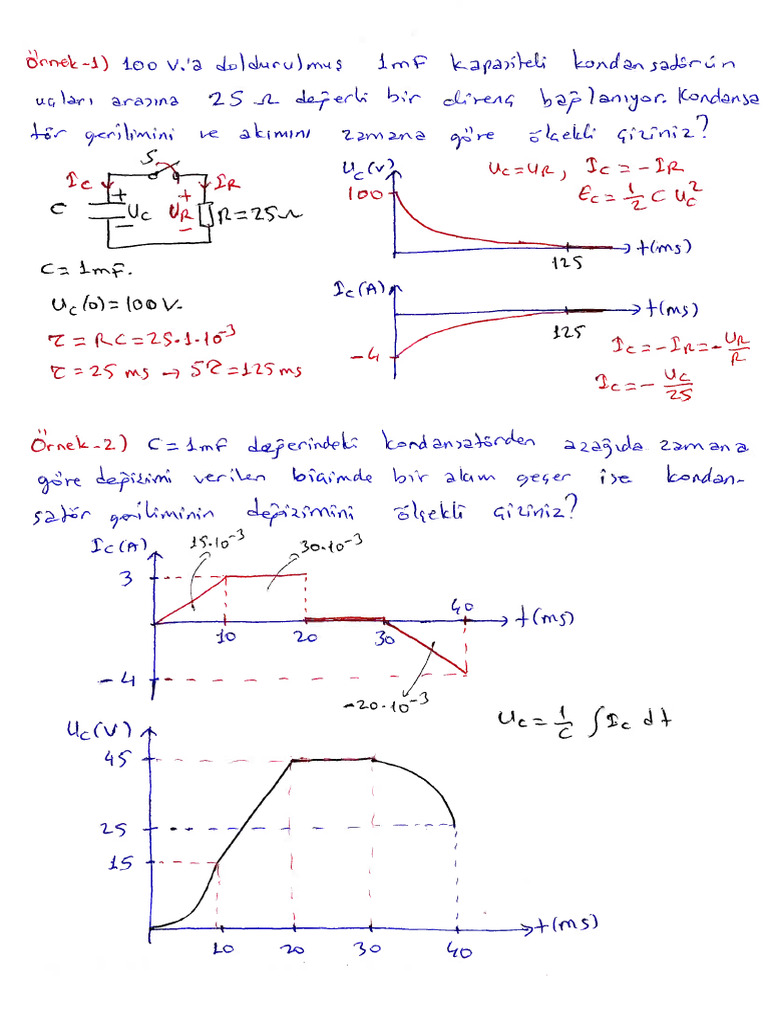 Örnek-1) 100 V.'a doldurulmuş 1mF kapasiteli kondansatörün
uçları arasına 25 Ω değerli bir direnç bağlanıyor. Kondansa
tör gerilimini ve akımını zamana göre ölçekli çiziniz?
S
Ic
IR
C
+
Uc
-
+
UR
-
R=25Ω
C=1mF.
Uc(0)=100V.
τ=RC=25.1.10⁻³
τ=25 ms → 5τ=125ms
Uc(V)
100
125
t(ms)
Uc=UR, Ic=-IR
Ec=1/2 C Uc²
Ic(A)
-4
125
t(ms)
Ic=-IR=-UR/R
Ic=-Uc/25
Örnek-2) C=1mF değerindeki kondansatörden aşağıda zamana
göre değişimi verilen biçimde bir akım geçer ise kondan-
satör geriliminin değişimini ölçekli çiziniz?
Ic(A)
15.10⁻³
30.10⁻³
3
40
t(ms)
10 20 30
-4
-20.10⁻³
Uc=1/C ∫Ic dt
Uc(V)
45
25
15
10 20 30 40
t(ms)